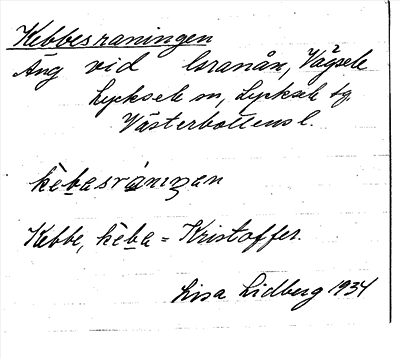 Kebbesraningen
Äng vid Granån, Vägsele
Lycksele sn, Lycksele tg.
Västerbottens l.
kèbasráningan
Kebbe, kèba = Kristoffer.
Lisa Lidberg 1934